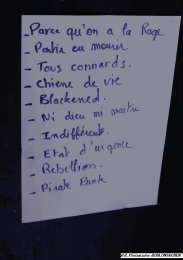 _ Parce qu'on a la Rage
_ Partir ou mourir
- Tous connards.
- Chiene de vie
- Blackened.
- Ni dieu ni maitre
- Indifférents.
- Etat d'urgence
- Rebellion.
- Pirate Punk